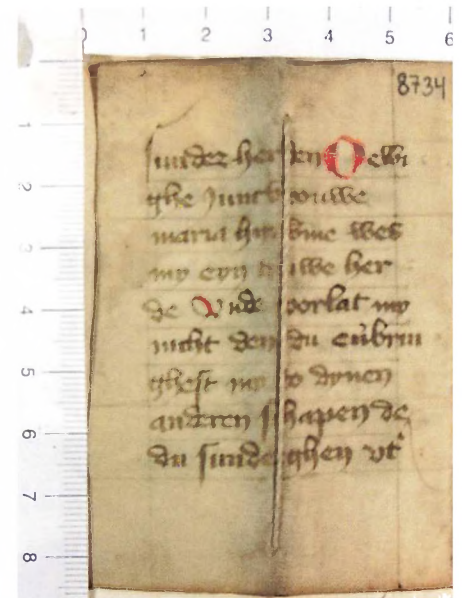 8734
sunder her ien O ewi
ghe Juncvrouwe
maria hir bine wes
my eyn truwe her
de Vnde vorlat my
nicht den du enbrin
ghest my to dynen
anderen schapen de
du sunderghen vt